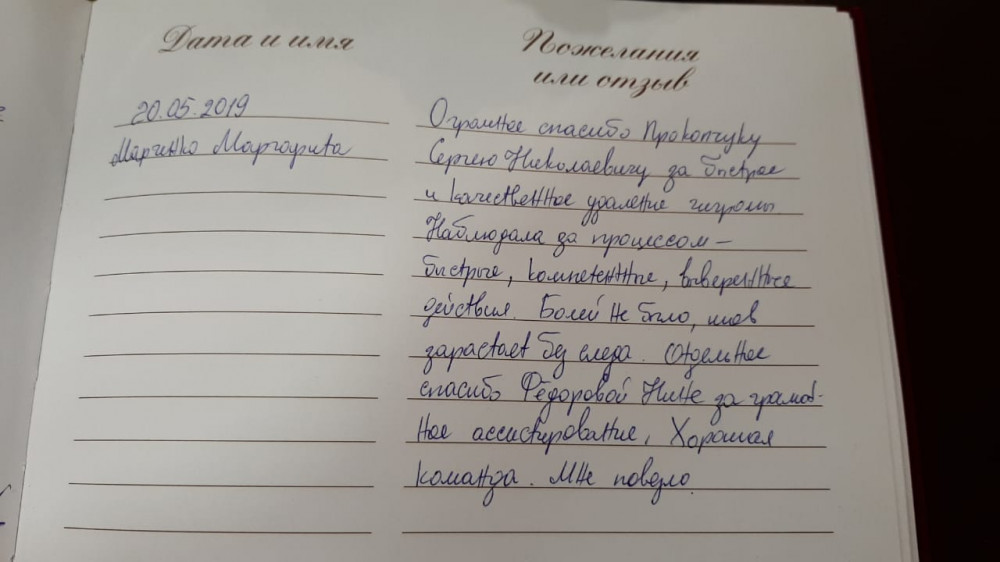 Дата и имя
Пожелания
или отзыв
20.05.2019
Марченко Маргарита
Огромное спасибо Прокопчуку
Сергею Николаевичу за быстрое
и качественное удаление гигромы.
Наблюдала за процессом –
быстрые, компетентные, выверенные
действия. Болей не было, шов
зарастает без следа. Отдельное
спасибо Фёдоровой Нине за грамот-
ное ассистирование. Хорошая
команда. Мне повезло.